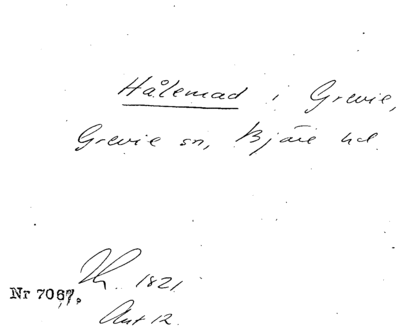 Hålemad i Grevie,
Grevie sn, Bjäre hd
1821
Nr 7067.
Akt 12.